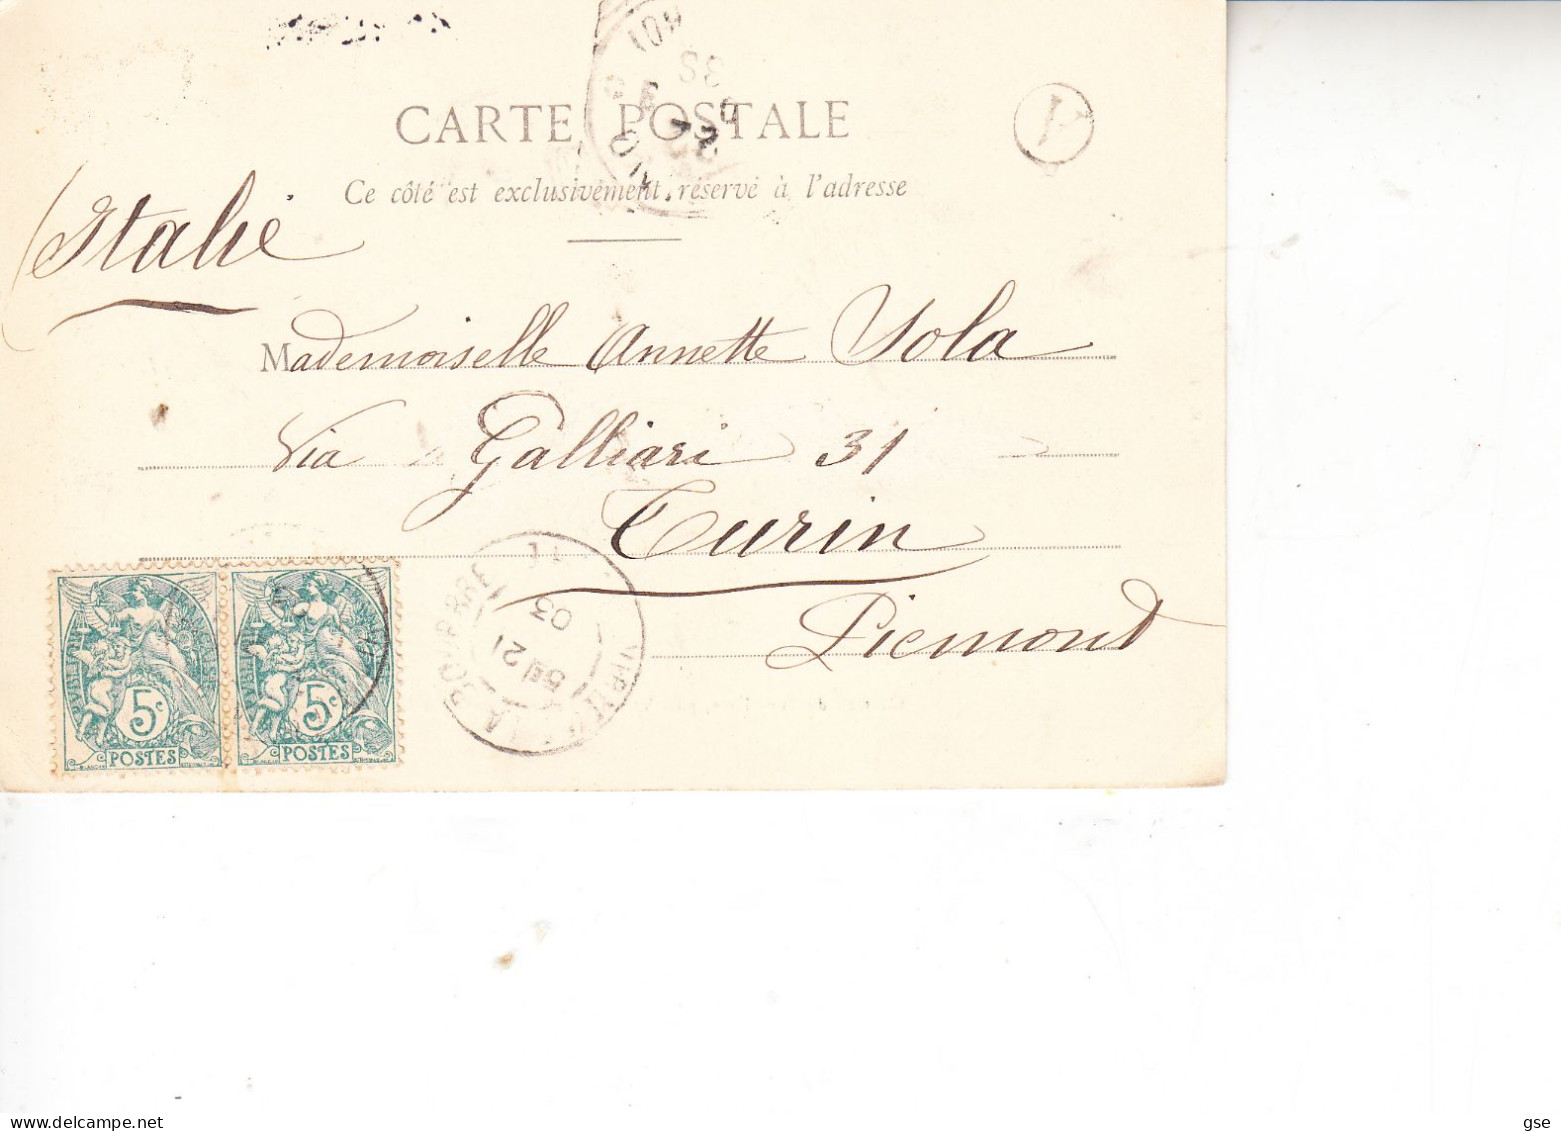 CARTE POSTALE
Ce côté est exclusivement réservé à l'adresse
Italie
Mademoiselle Annette Sola
Via Galliari 31
Turin
Piemont
5c
POSTES
5c
POSTES
LA BOURBRE
21
03
A
delcampe.net
gse